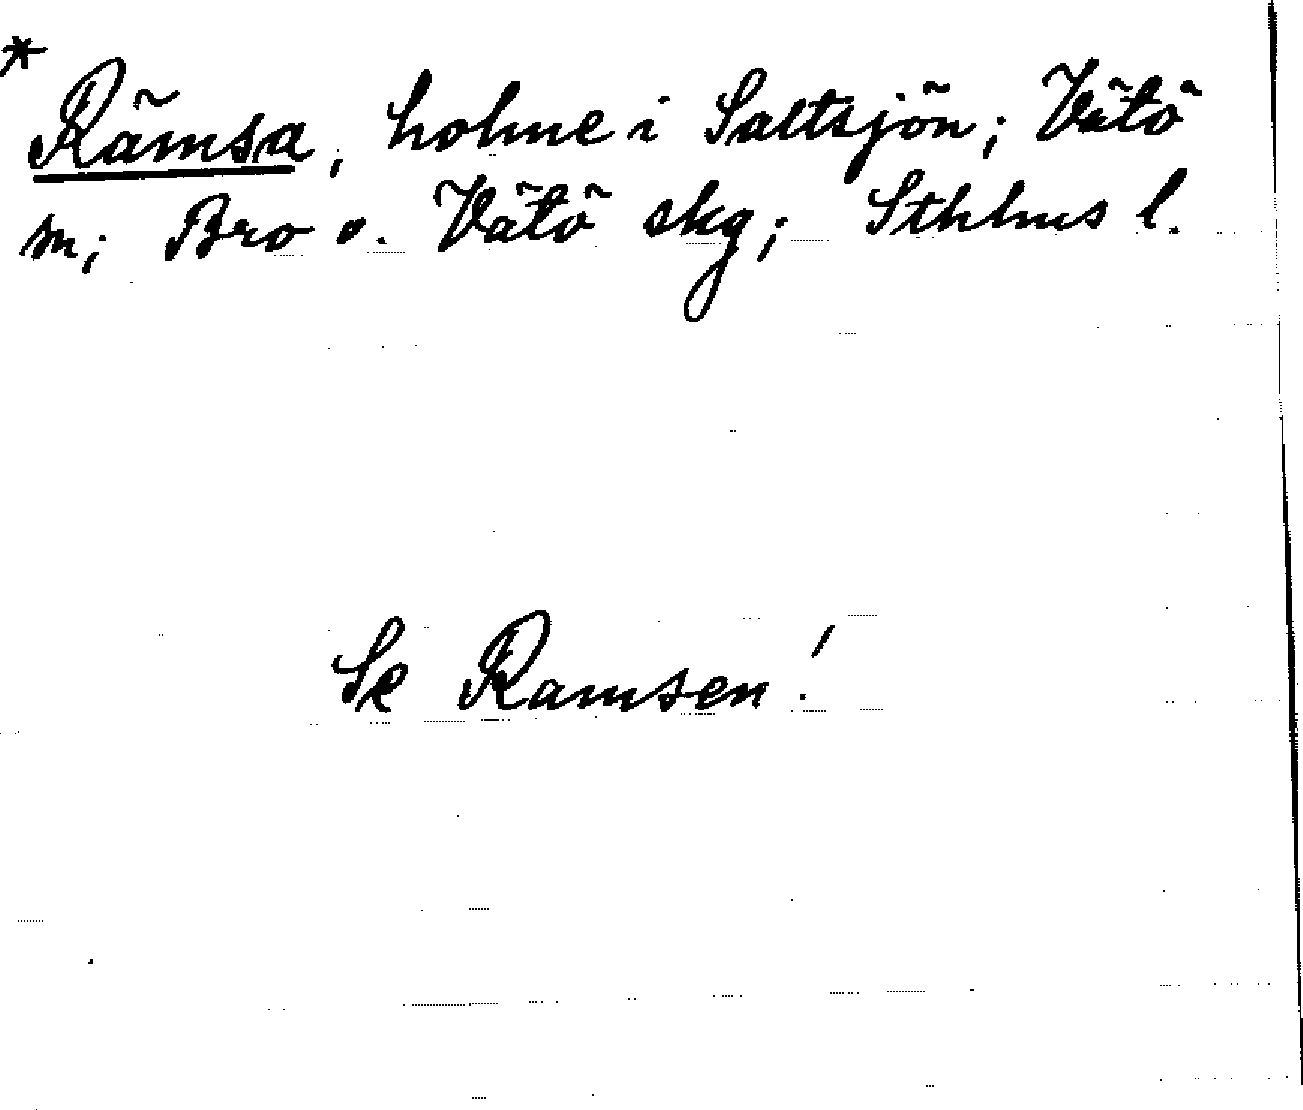 * Rämsa, holme i Saltsjön; Vätö
sn; Bro o. Vätö skg; Sthlms l.
Se Ramsen!